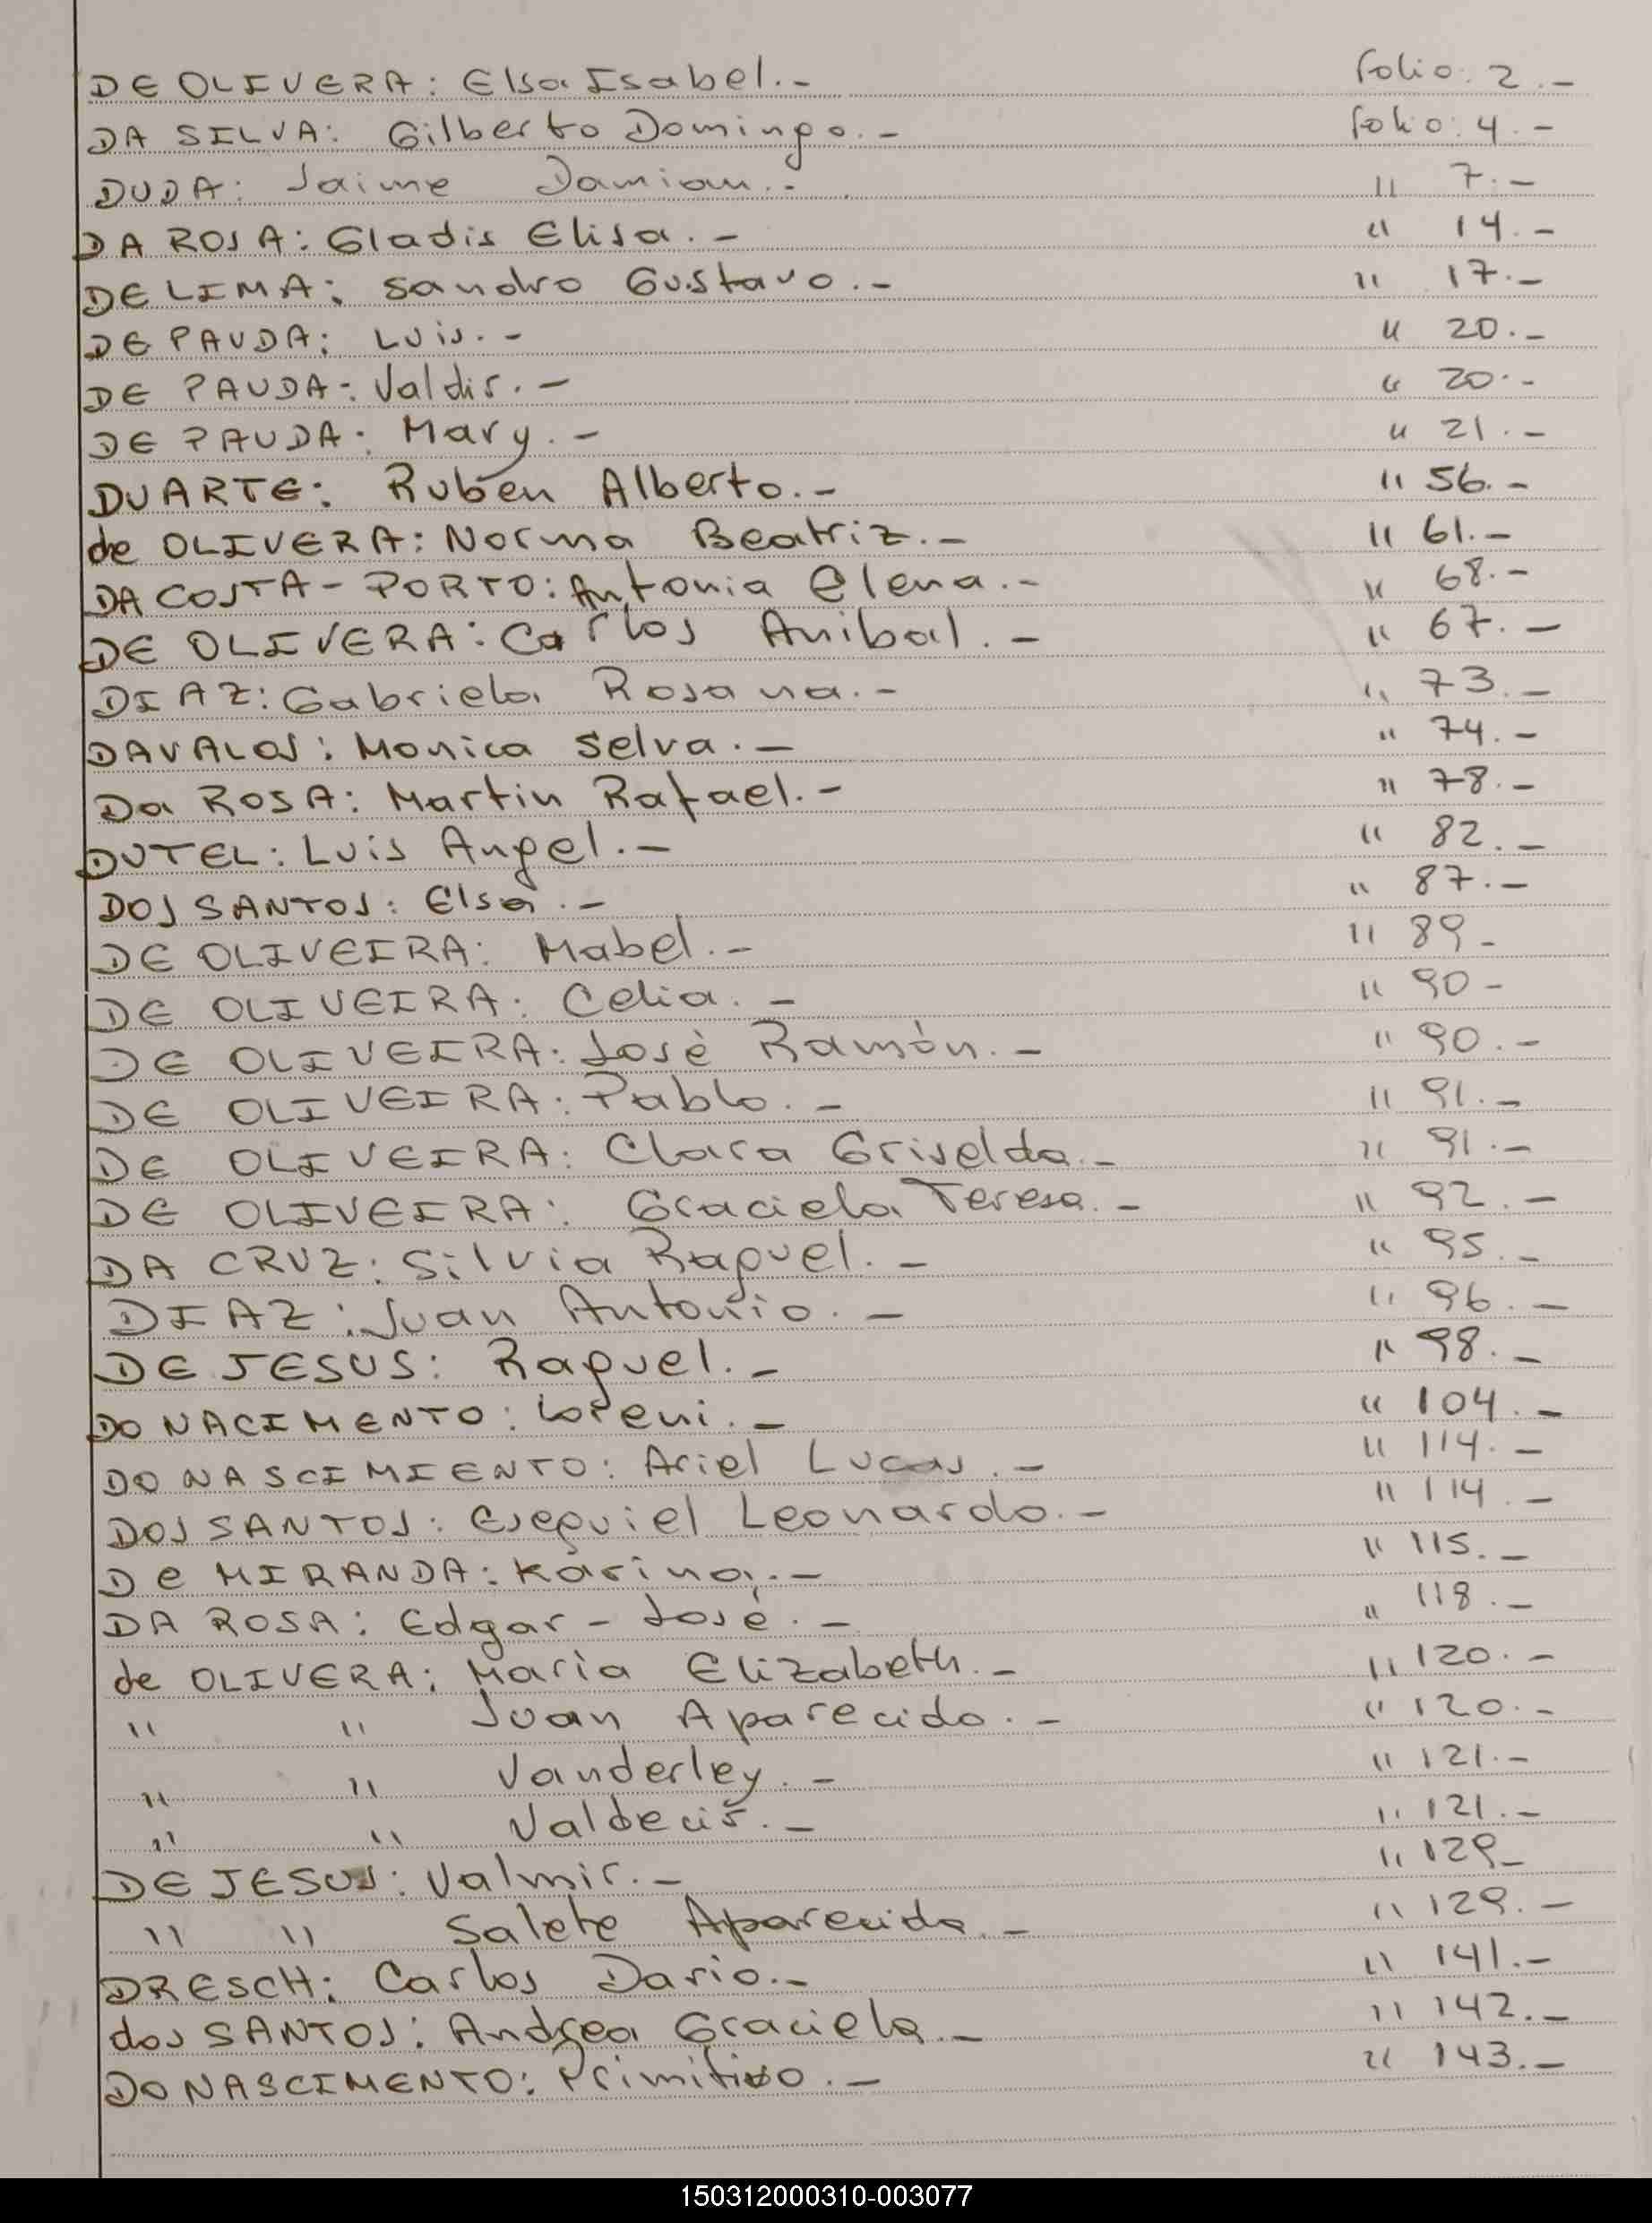 DE OLIVERA: Elsa Isabel.- folio: 2.-
DA SILVA: Gilberto Domingo.- folio: 4.-
DUDA: Jaime Damian.- " 7.-
DA ROSA: Gladis Elisa.- " 14.-
DE LIMA: Sandro Gustavo.- " 17.-
DE PAUDA: Luis.- " 20.-
DE PAUDA: Valdir.- " 20.-
DE PAUDA: Mary.- " 21.-
DUARTE: Ruben Alberto.- " 56.-
de OLIVERA: Norma Beatriz.- " 61.-
DA COSTA - PORTO: Antonia Elena.- " 68.-
DE OLIVERA: Carlos Anibal.- " 67.-
DIAZ: Gabriela Rosana.- " 73.-
DAVALOS: Monica Selva.- " 74.-
Da ROSA: Martin Rafael.- " 78.-
DUTEL: Luis Angel.- " 82.-
DOS SANTOS: Elsa.- " 87.-
DE OLIVEIRA: Mabel.- " 89-
DE OLIVEIRA: Celia.- " 90-
DE OLIVEIRA: José Ramón.- " 90.-
DE OLIVEIRA: Pablo.- " 91.-
DE OLIVEIRA: Clara Griselda.- " 91.-
DE OLIVEIRA: Graciela Teresa.- " 92.-
DA CRUZ: Silvia Raquel.- " 95.-
DIAZ: Juan Antonio.- " 96.-
DE JESUS: Raquel.- " 98.-
DO NACIMENTO: Loreni.- " 104.-
DO NASCIMIENTO: Ariel Lucas.- " 114.-
DOS SANTOS: Esequiel Leonardo.- " 114.-
De MIRANDA: Karina.- " 115.-
DA ROSA: Edgar - José.- " 118.-
de OLIVERA: Maria Elizabeth.- " 120.-
" " Juan Aparecido.- " 120.-
" " Vanderley.- " 121.-
" " Valdecir.- " 121.-
DE JESUS: Valmir.- " 129-
" " Salete Aparecida.- " 129.-
DRESCH: Carlos Dario.- " 141.-
dos SANTOS: Andrea Graciela.- " 142.-
DO NASCIMENTO: Primitivo.- " 143.-
150312000310-003077